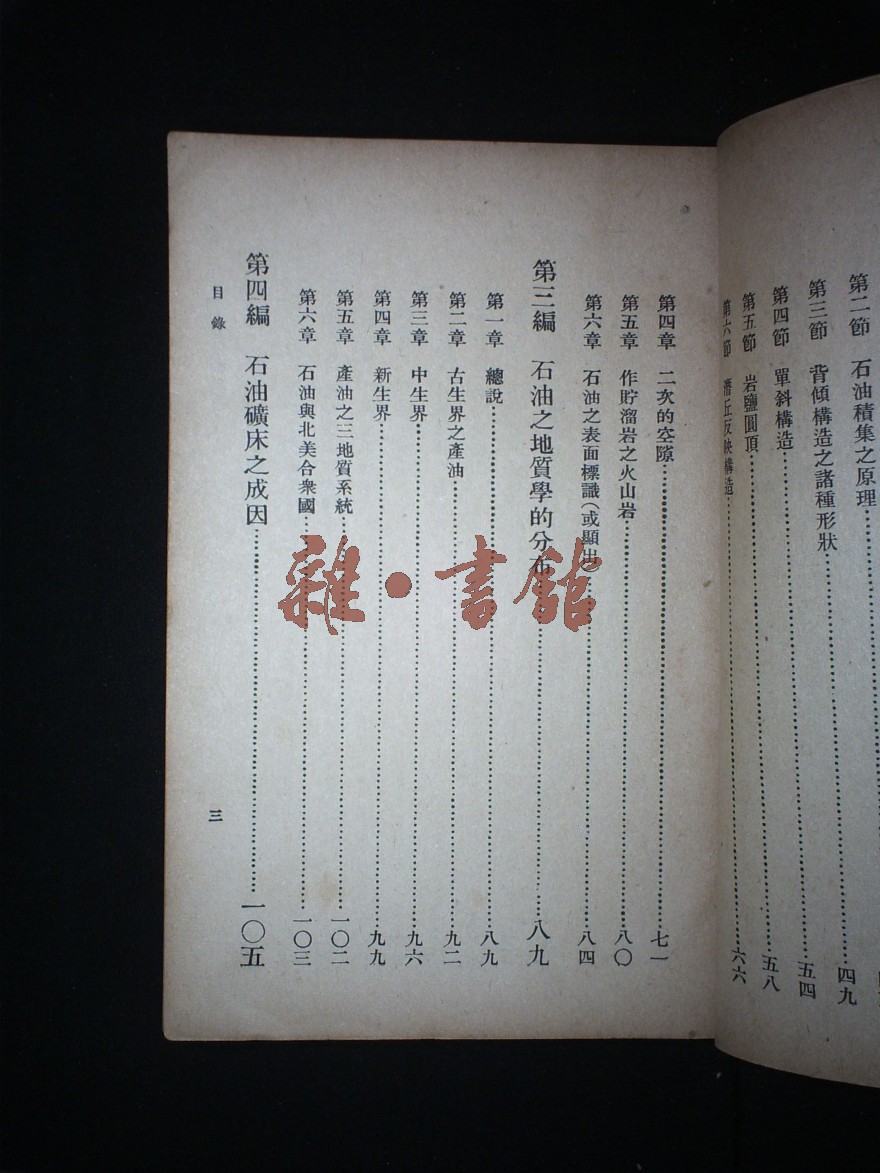 第二節 石油積集之原理
第三節 背傾構造之諸種形狀……四九
第四節 單斜構造……五四
第五節 岩鹽圓頂……五八
第六節 構造……六六
第四章 二次的空隙……七一
第五章 作貯溜岩之火山岩……八〇
第六章 石油之表面標識(或顯出)……八四
第三編 石油之地質學的分布……八九
第一章 總說……八九
第二章 古生界之產油……九二
第三章 中生界……九六
第四章 新生界……九九
第五章 產油之三地質系統……一〇二
第六章 石油與北美合衆國……一〇三
第四編 石油礦床之成因……一〇五
目錄
三
雜·書館